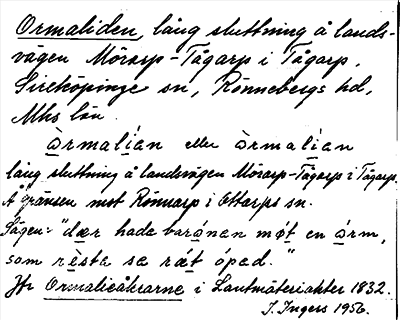 Ormaliden, lång sluttning å lands-
vägen Mörarp-Tågarp i Tågarp,
Sireköpinge sn, Rönnebergs hd,
Mhs län.
òrmalían eller òrmalían
lång sluttning å landsvägen Mörarp-Tågarp i Tågarp.
Å gränsen mot Rönnarp i Ottarps sn.
Sägen: "dær hade barónen møt en òrm,
som rèsta se ræt óped."
Jfr Ormalieåkrarne i Lantmäteriakter 1832.
J. Ingers 1956.